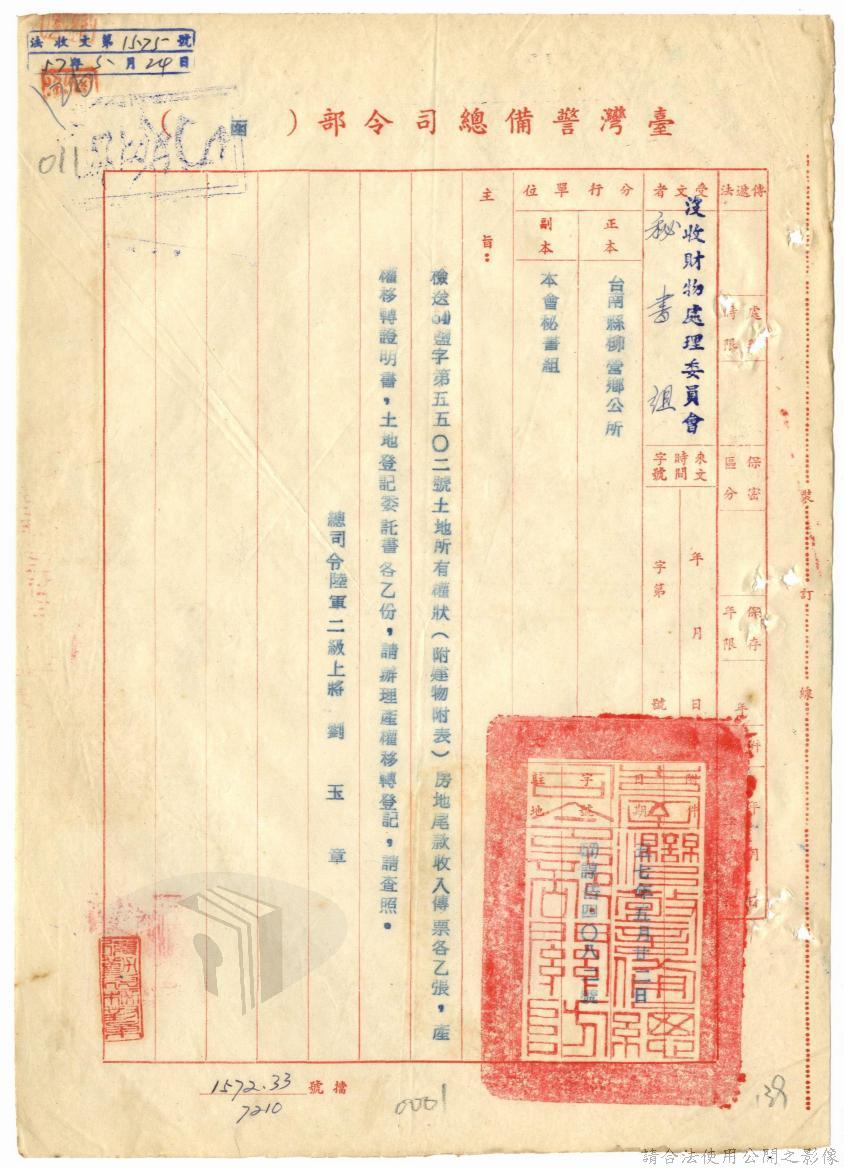 法收文第1575號
57年5月24日
臺灣警備總司令部(函)
011
傳遞法
處理時限
保密區分
保存年限
受文者
沒收財物處理委員會
秘書組
來文
時間
字號
年月日
字第號
分行單位
正本
台南縣柳營鄉公所
副本
本會秘書組
附件
日期
字號
駐地
七年五月廿二日
主旨:
檢送59鹽字第五五〇二號土地所有權狀(附建物附表)房地尾款收入傳票各乙張,產
權移轉證明書,土地登記委託書各乙份,請辦理產權移轉登記,請查照。
總司令陸軍二級上將劉玉章
裝訂線
檔號
1572.33
7210
0001
139
請合法使用公開之影像